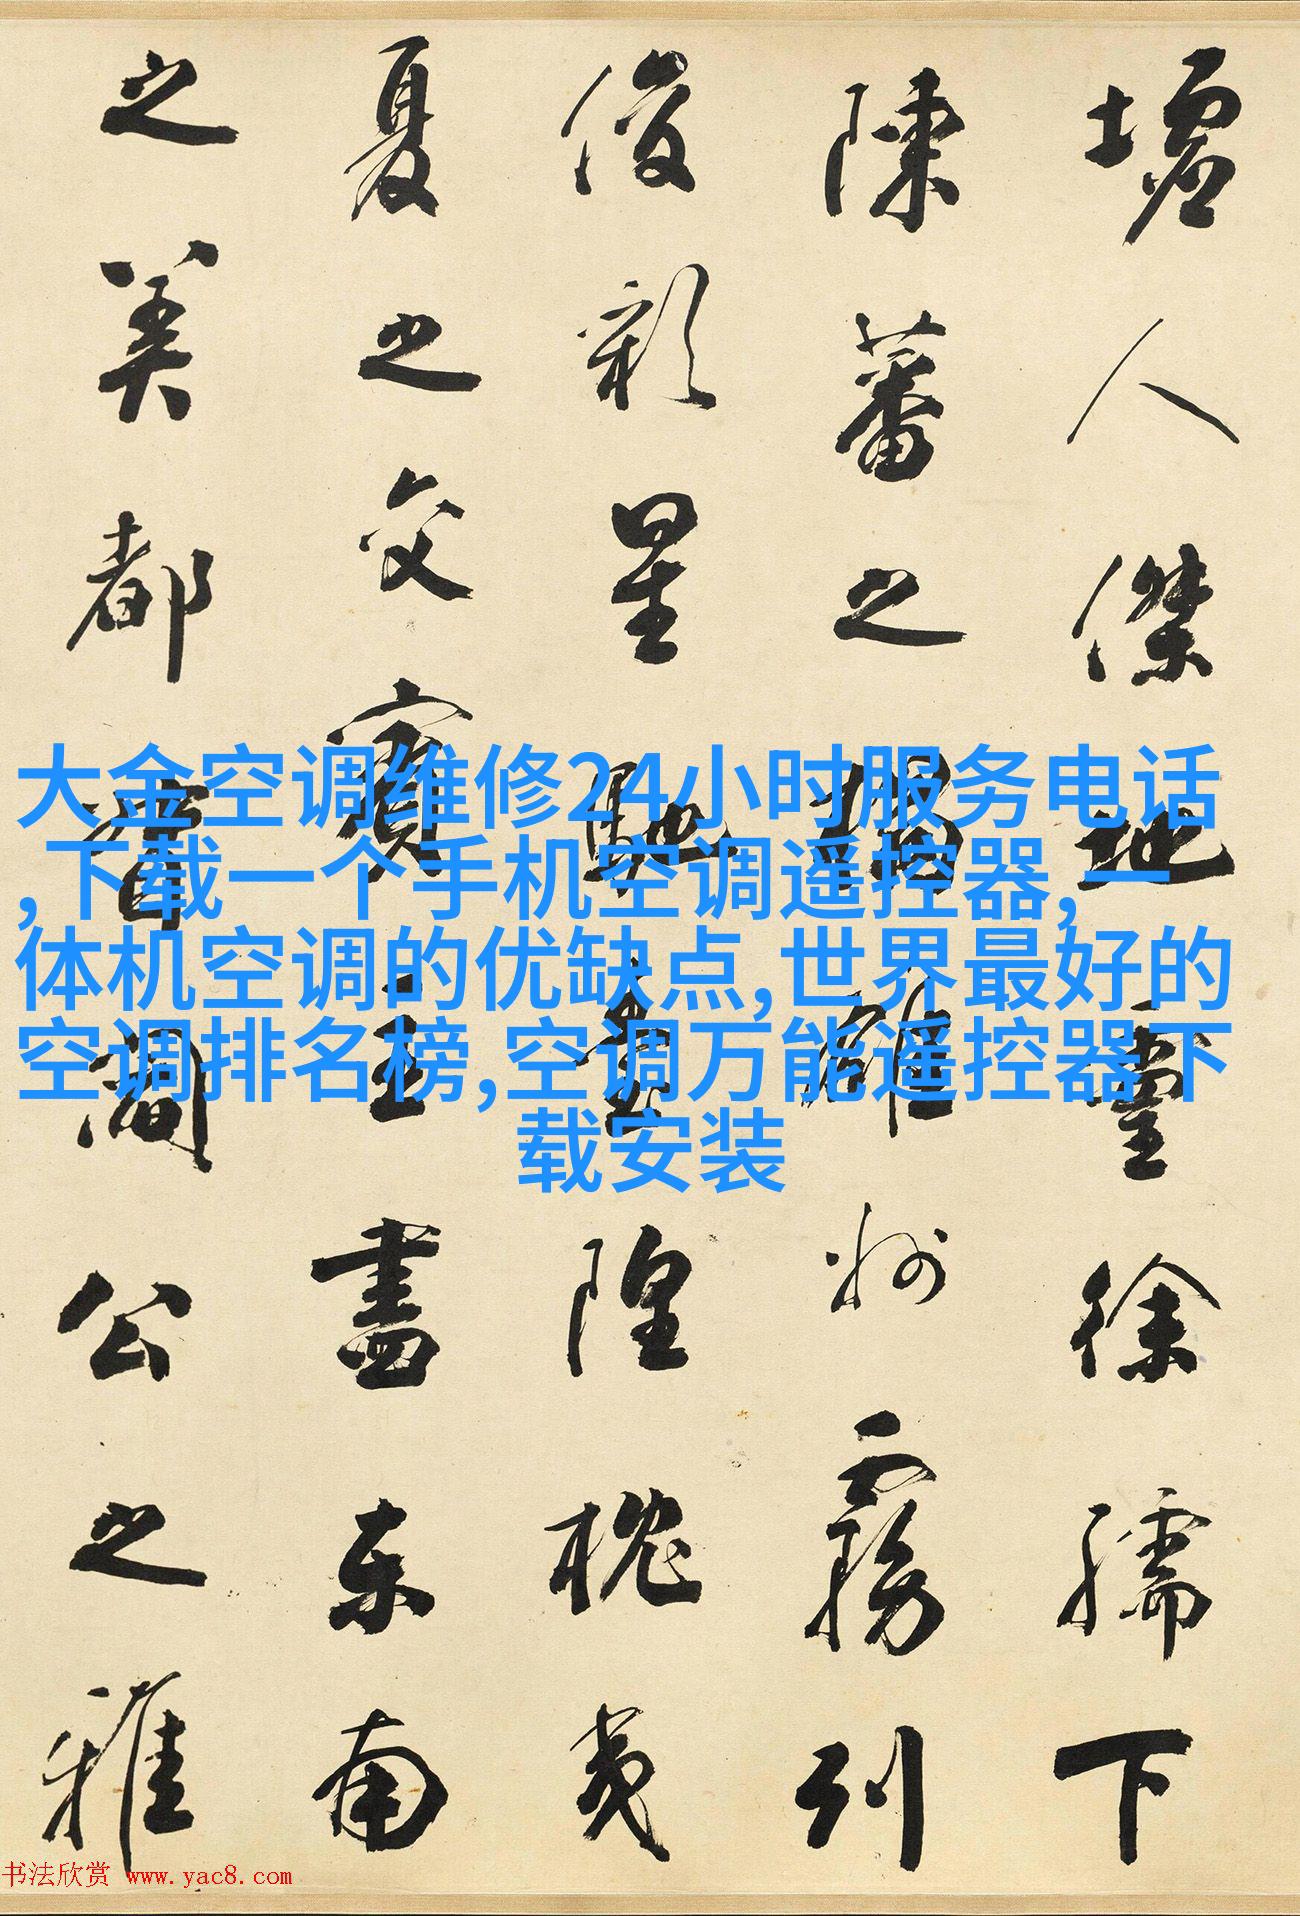 墟人傑地靈徐孺下
陳蕃之榻雄州霧列
俊彩星馳臺隍枕夷
夏之交賓主盡东南
之美都督閻公之雅
大金空调维修24小时服务电话
,下载一个手机空调遥控器,一
体机空调的优缺点,世界最好的
空调排名榜,空调万能遥控器下
载安装
书法欣赏 www.yac8.com